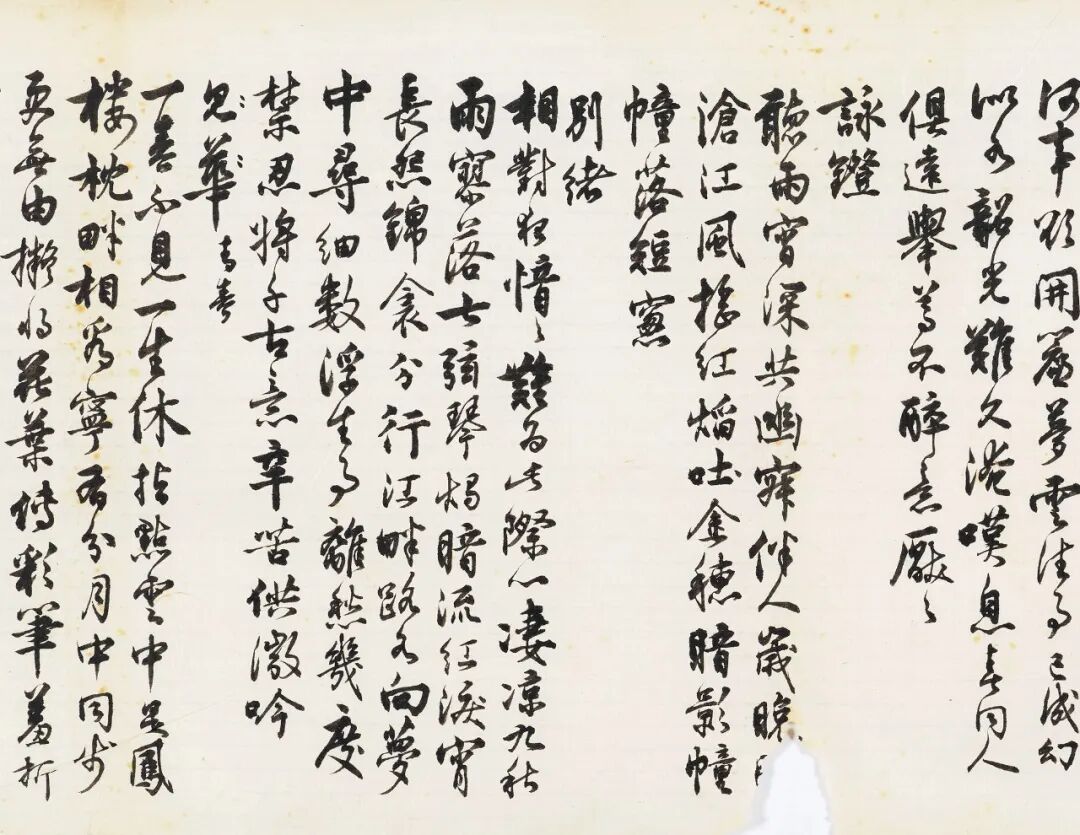 何事欲開簾夢雲往事已成幻
似水韶光難久淹嘆息與同人
俱遠舉尊不醉意厭〻
詠鐙
聽雨宵深共幽寂伴人歲晚
滄江風搖紅焰吐金穗暗影幢
幢落短窗
別緒
相對夜愔〻難為此際心凄涼九秋
雨寥落七弦琴燭暗流紅淚宵
長怨錦衾分行江畔路又向夢
中尋細數浮生事離愁幾度
禁忍將千古意辛苦供微吟
見華
一春不見一生休指點雲中是鳳
樓枕畔相看寧有分月中同步
更無由擬將花葉傳彩筆羞折